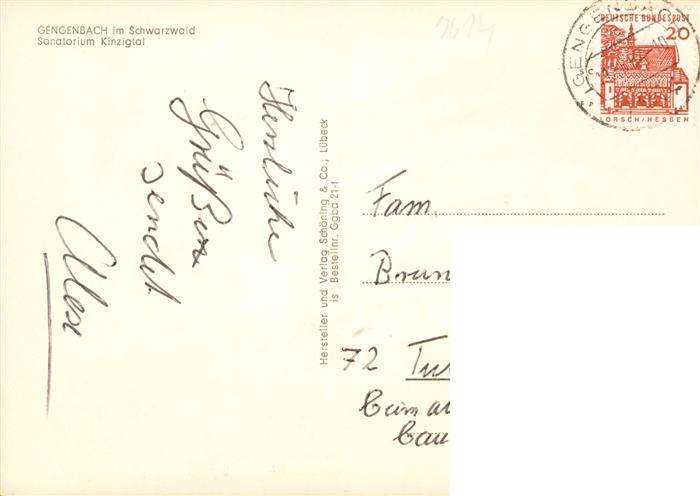 GENGENBACH im Schwarzwald
Sanatorium Kinzigtal
Herzliche
Grüße
sendet
Alex
Hersteller und Verlag Schöning & Co., Lübeck
is Bestellnr. Ggba 21-f
GENGENBACH
DEUTSCHE BUNDESPOST
20
LORSCH/HESSEN
Fam.
Brun
72 Tut
beim al